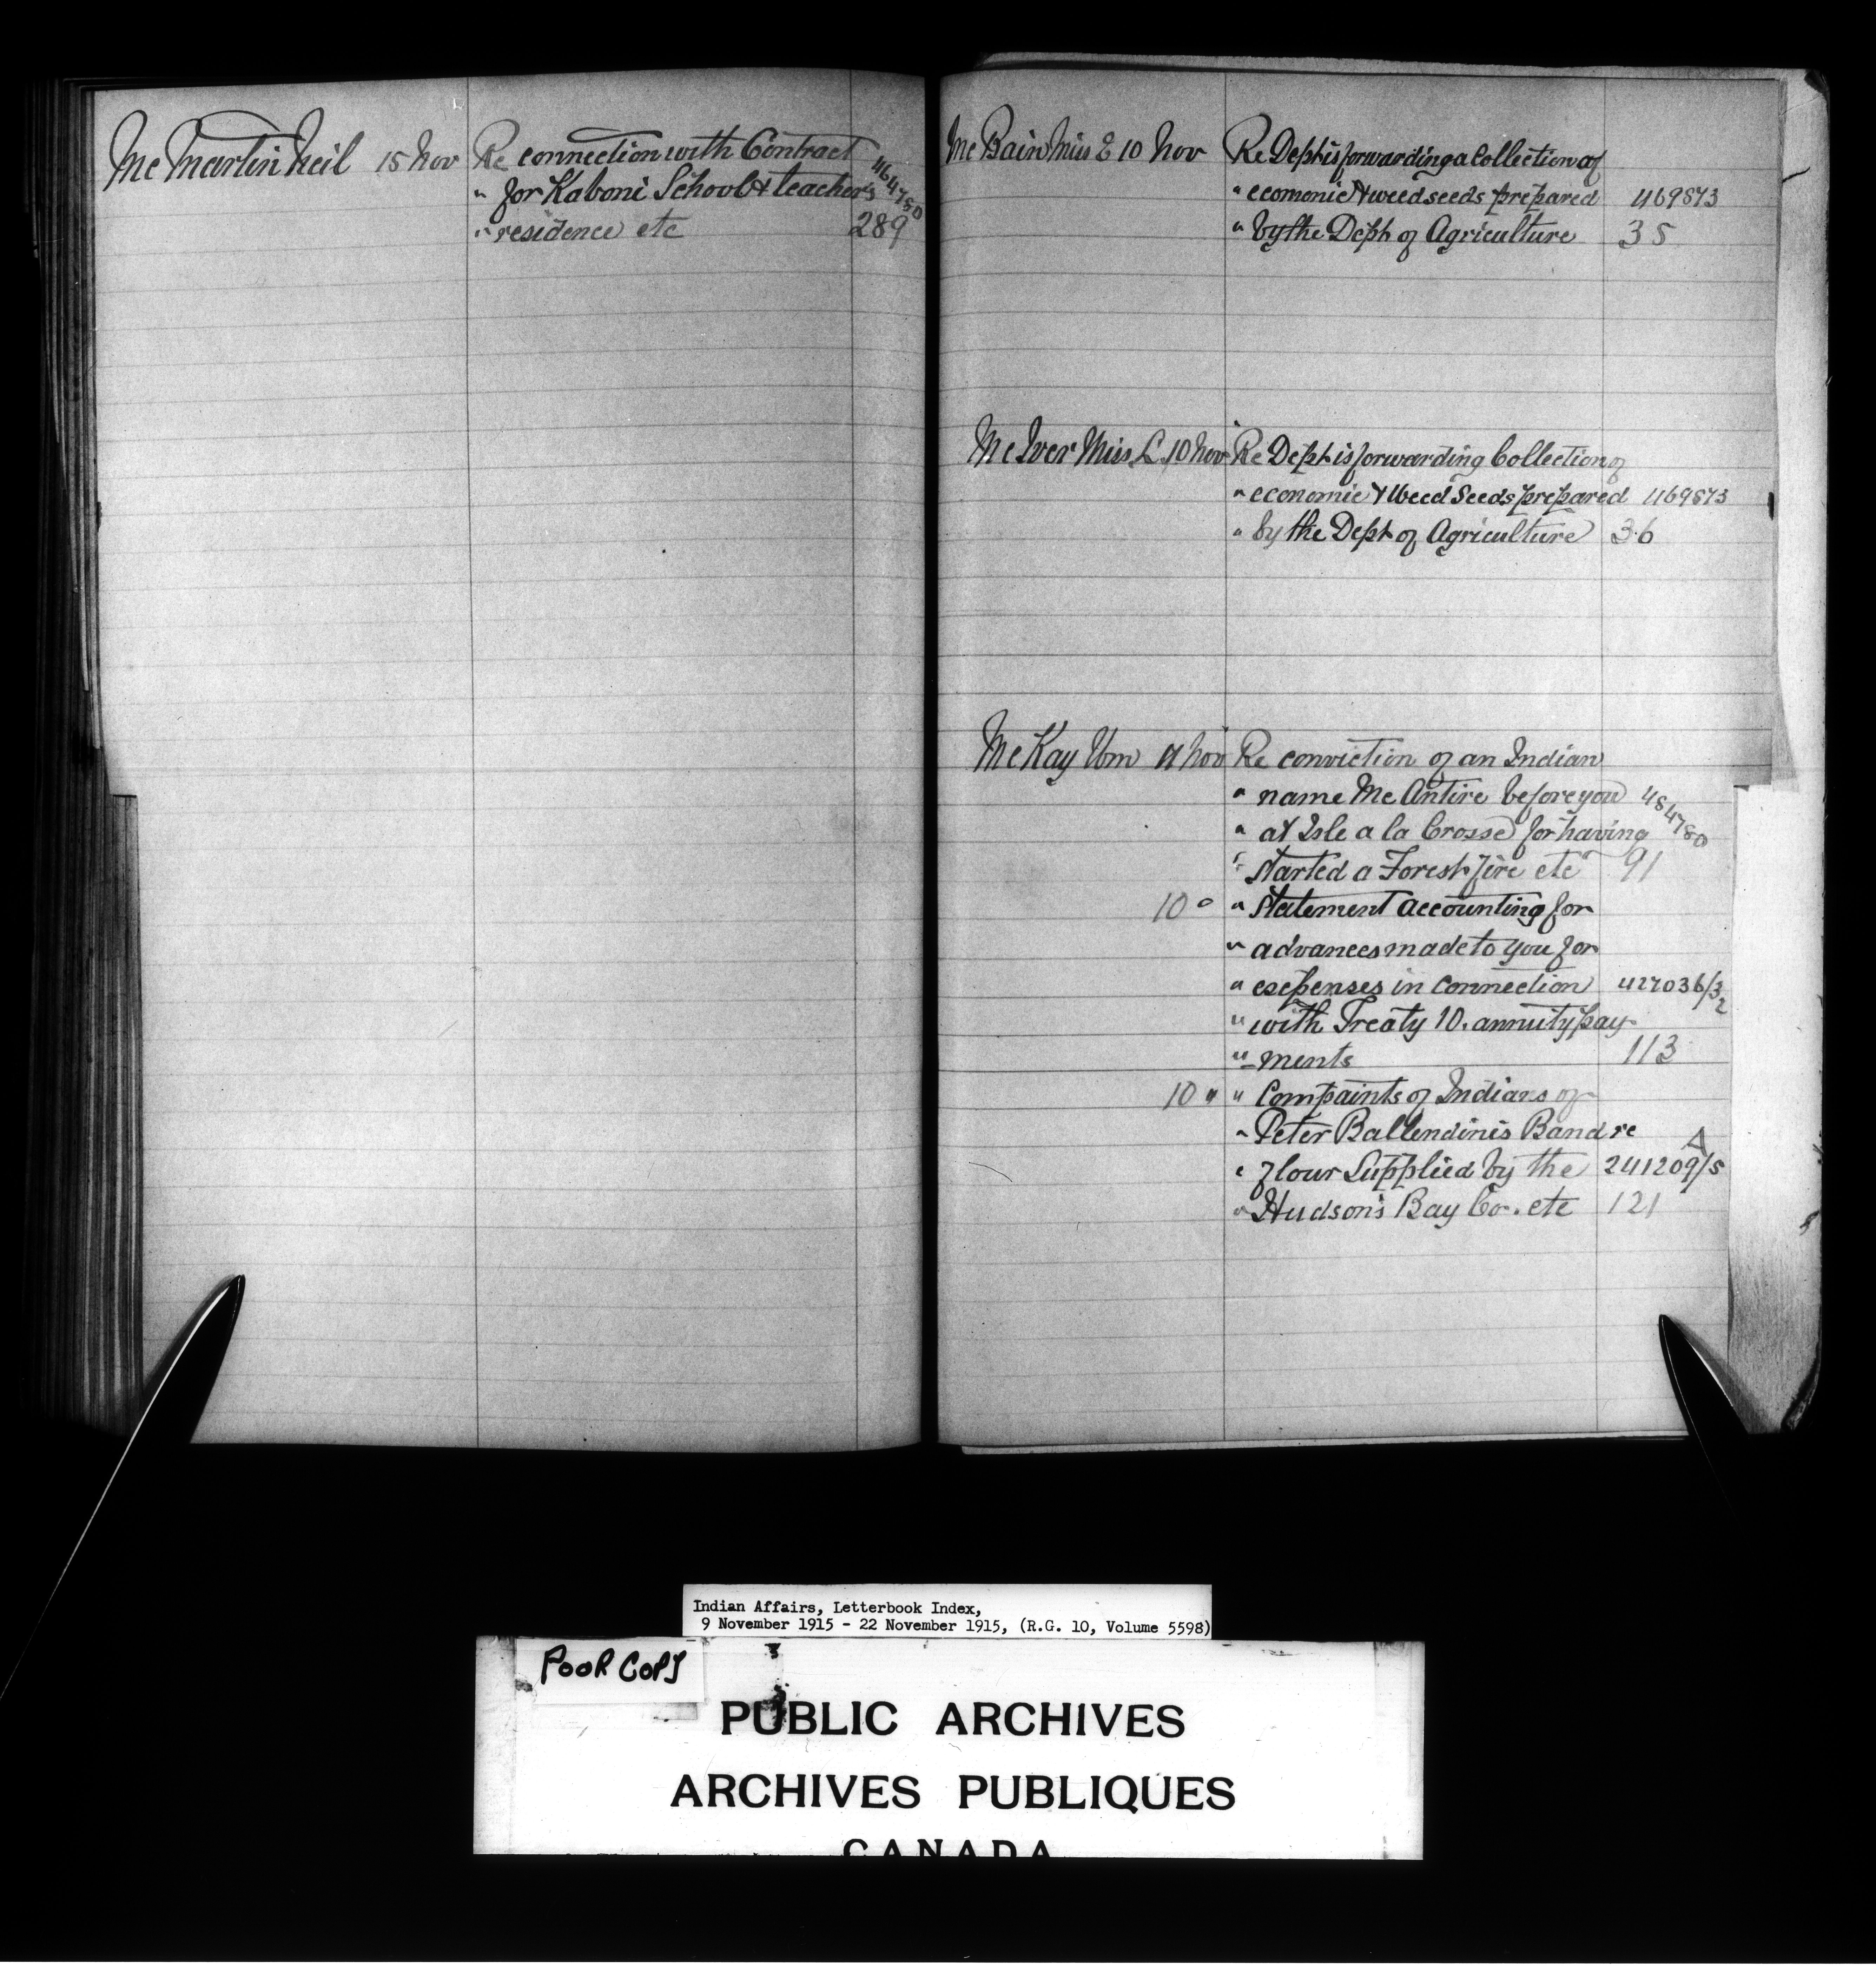 Mc Martin Neil 15 Nov Re connection with Contract
" for Kaboni School & teacher's 464750
" residence etc 289
Mc Bain Miss E 10 Nov Re Dept is forwarding a Collection of
" ecomonic & weed seeds prepared 469873
" by the Dept of Agriculture 35
Mc Iver Miss L 10 Nov Re Dept is forwarding Collection of
" economic & Weed Seeds prepared 469873
" by the Dept of Agriculture 36
Mc Kay Wm 9 Nov Re conviction of an Indian
" name Mc Antire before you 484780
" at Isle a la Crosse for having
" started a Forest fire etc 91
10 " " Statement accounting for
" advances made to you for
" expenses in connection 427036/32
" with Treaty 10. annuity pay-
" ments 113
10 " " Compaints of Indians of
" Peter Ballendinis Band re A
" flour Supplied by the 241209/5
" Hudson's Bay Co. etc 121
Indian Affairs, Letterbook Index,
9 November 1915 - 22 November 1915, (R.G. 10, Volume 5598)
POOR COPY
PUBLIC ARCHIVES
ARCHIVES PUBLIQUES
CANADA